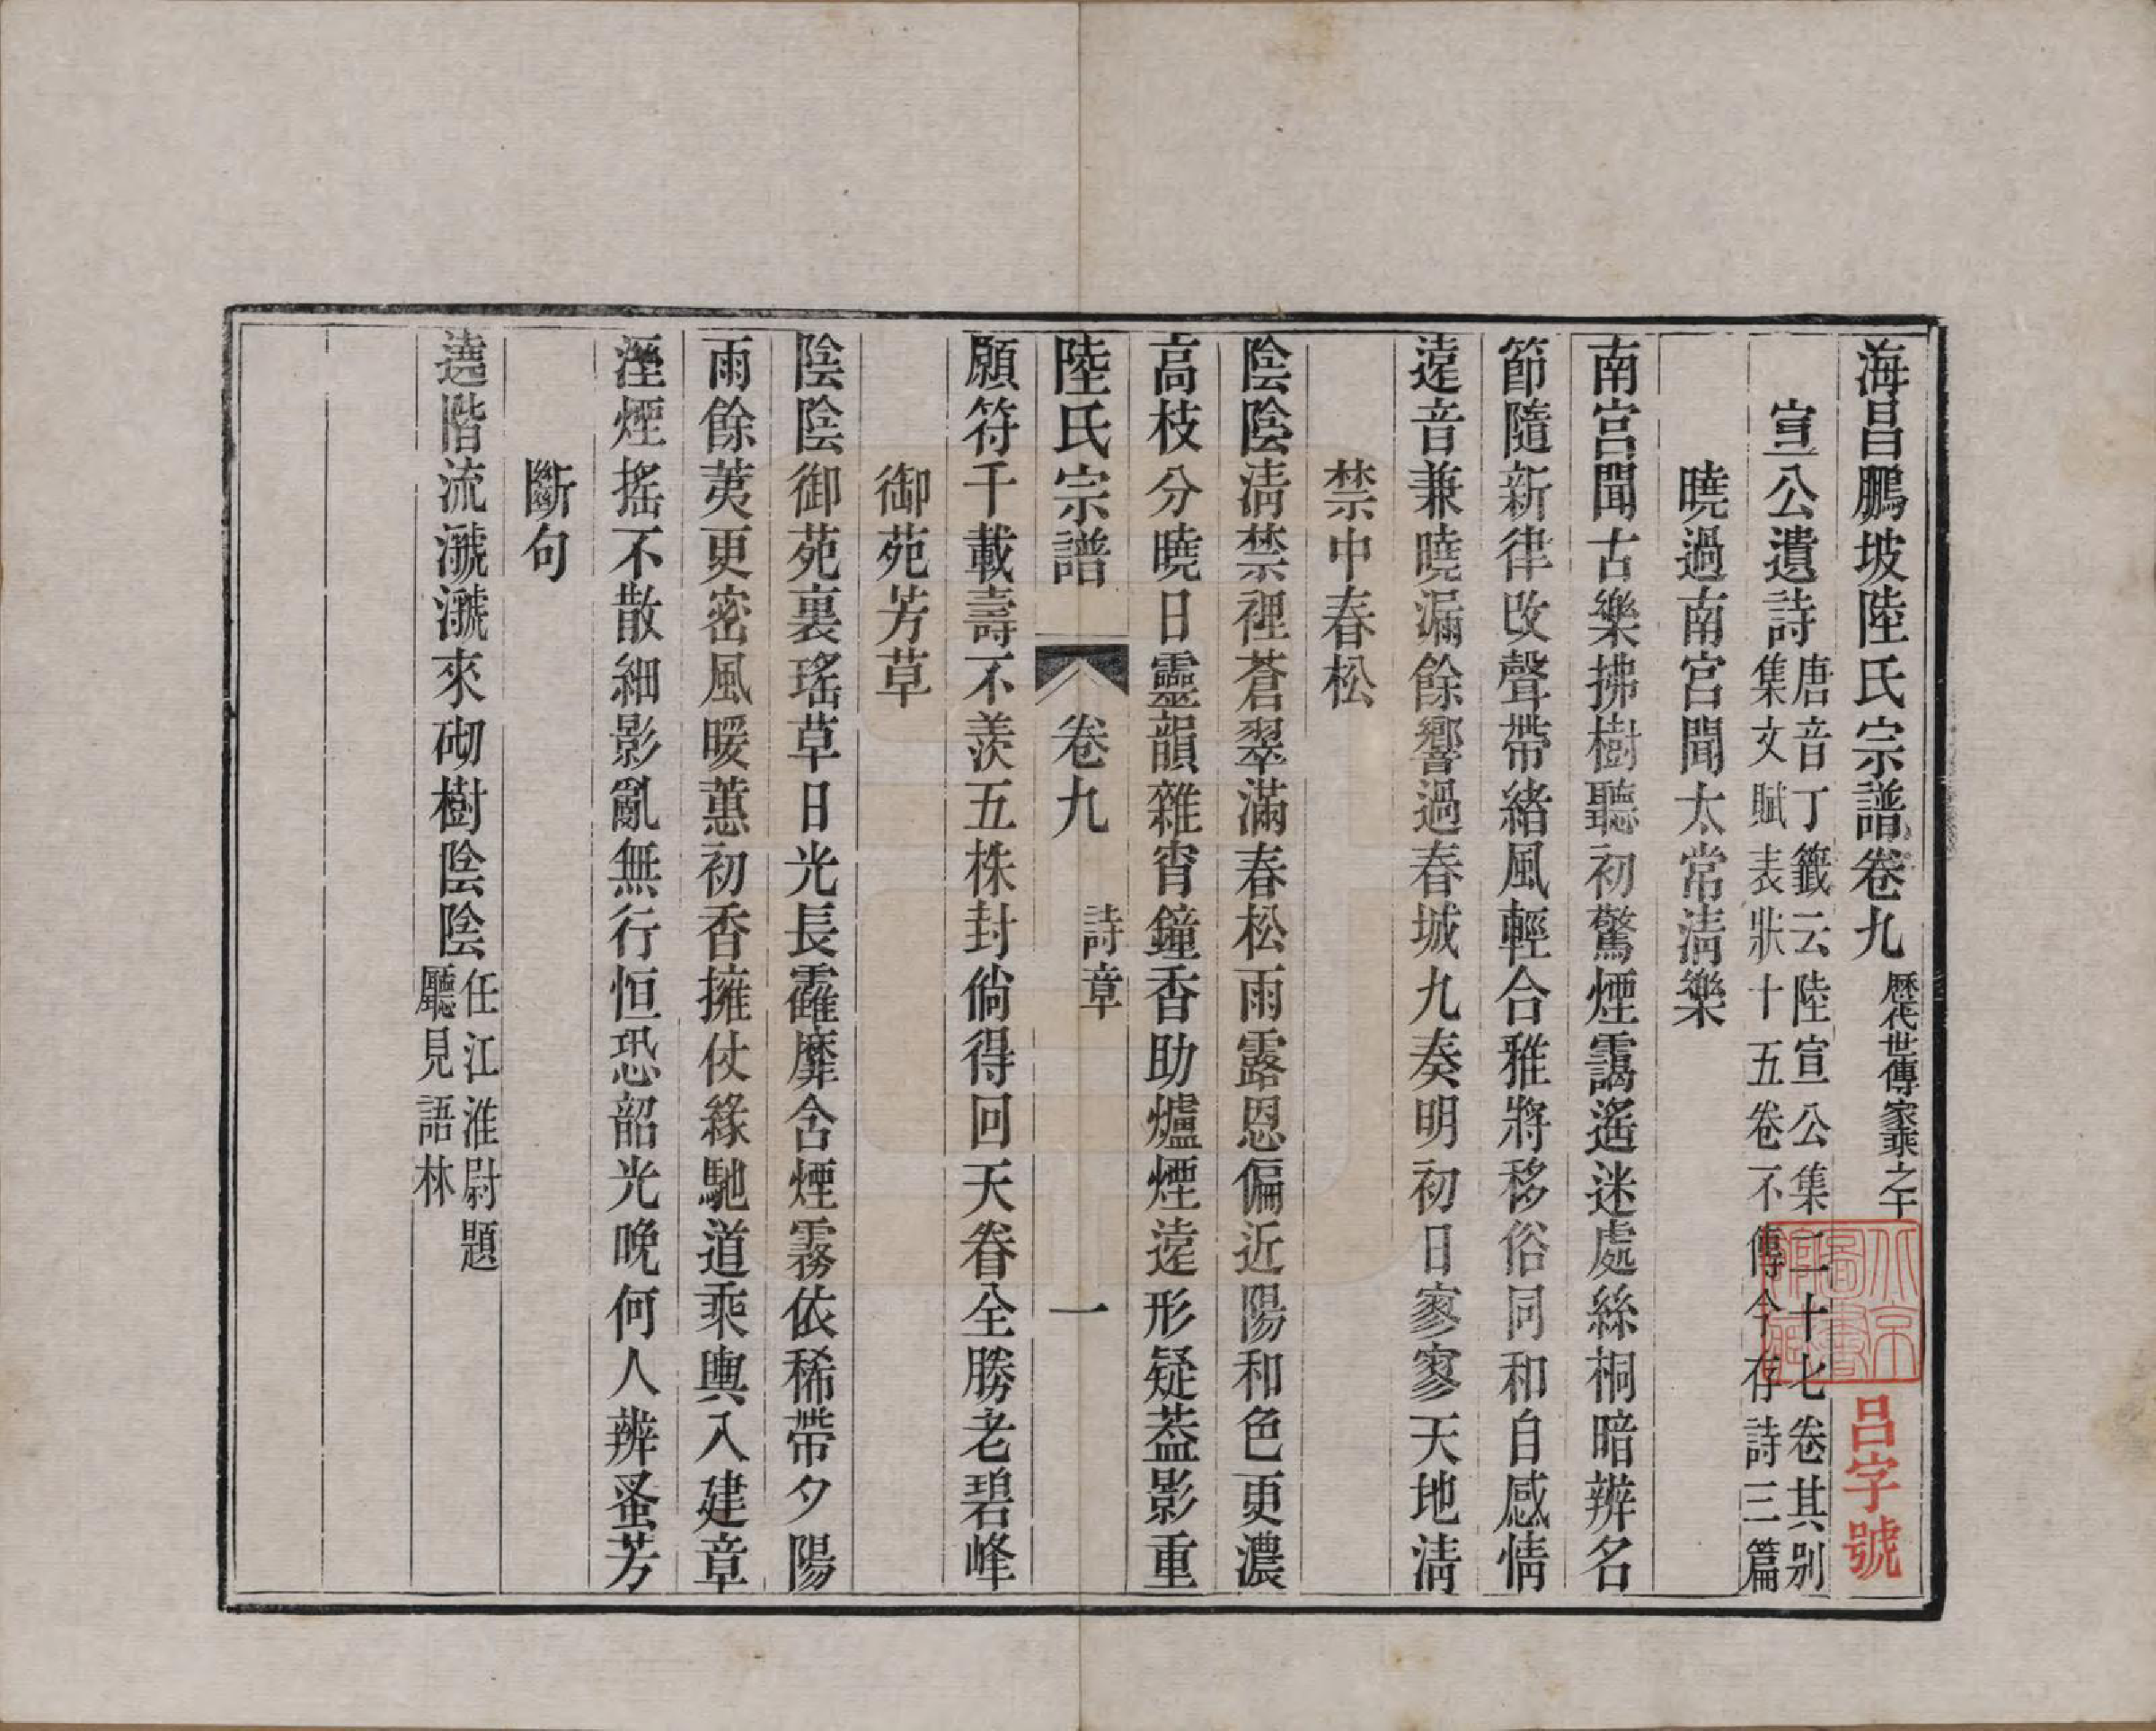 海昌鵬坡陸氏宗譜卷九 歷代世傳家乘之下
宣公遺詩 唐音丁籤云陸宣公集二十七卷其别
集文賦表狀十五卷不傳今存詩三篇
曉過南宮聞太常淸樂
南宮聞古樂拂樹聽初驚煙靄遙迷處絲桐暗辨名
節隨新律改聲帶緒風輕合雅將移俗同和自感情
遠音兼曉漏餘響過春城九奏明初日寥寥天地淸
禁中春松
陰陰淸禁裡蒼翠滿春松雨露恩偏近陽和色更濃
高枝分曉日靈韻雜宵鐘香助爐煙遠形疑葢影重
陸氏宗譜 卷九 詩章 一
願符千載壽不羨五株封倘得回天眷全勝老碧峰
御苑芳草
陰陰御苑裏瑤草日光長靃靡含煙霧依稀帶夕陽
雨餘荑更密風暖蕙初香擁仗緣馳道乘輿入建章
溼煙搖不散細影亂無行恒恐韶光晚何人辨蚤芳
斷句
遶階流㶁㶁來砌樹陰陰 任江淮尉題
廳見語林
北京圖書館藏
呂字號